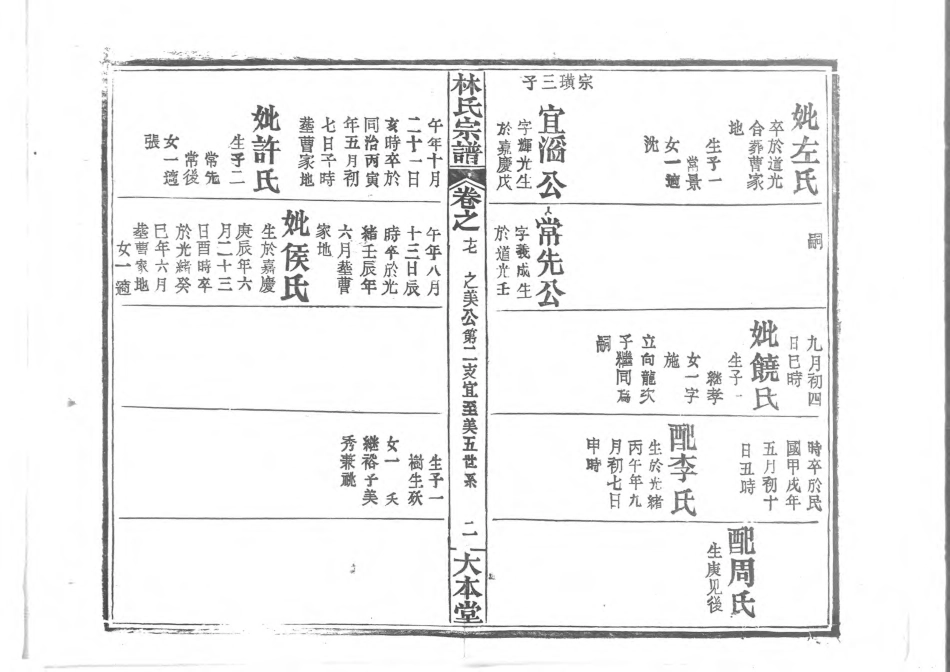 妣左氏
卒於道光
合葬曹家
地
生子一
常景
女一適
沈
宗璜三子
宜滔公
字輝光生
於嘉慶戊
嗣
常先公
字義成生
於道光壬
九月初四
日巳時
妣饒氏
生子
繼孝
女一字
施
立向龍次
子繼同為
嗣
時卒於民
國甲戌年
五月初十
日丑時
配李氏
生於光緒
丙午年九
月初七日
申時
配周氏
生庚見後
林氏宗譜
卷之
之美公第二支宜至美五世系
二
大本堂
午年十月
二十一日
亥時卒於
同治丙寅
年五月初
七日子時
墓曹家地
妣許氏
生子二
常先
常後
女一適
張
午年八月
十三日辰
時卒於光
緒壬辰年
六月墓曹
家地
妣侯氏
生於嘉慶
庚辰年六
月二十三
日酉時卒
於光緒癸
巳年六月
墓曹家地
女一適
生子一
樹生殀
女一夭
繼裕子美
秀兼祧